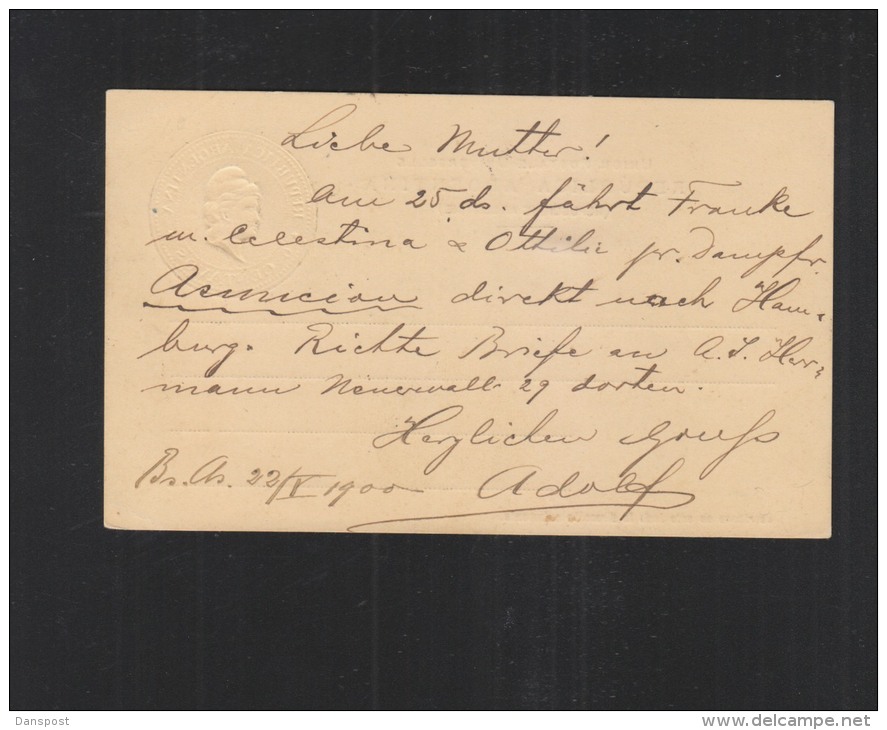 Liebe Mutter!
Am 25 ds. fährt Franke
m. Celestina & Ottilie pr. Dampfr.
Asuncion direkt nach Ham-
burg. Richte Briefe an A. J. Her-
mann Neuerwall 29 dorten.
Herzlichen Gruss
Bs. As. 22/V 1900 Adolf
Danspost
www.delcampe.net